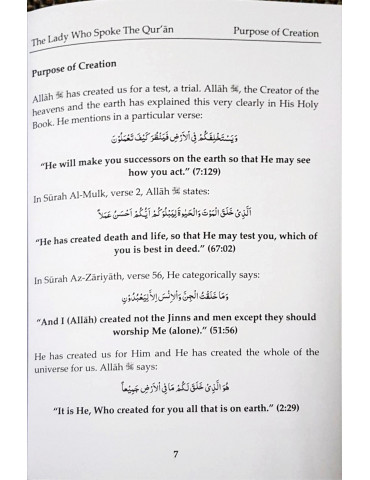 The Lady Who Spoke The Qur'ān Purpose of Creation
Purpose of Creation
Allāh ﷻ has created us for a test, a trial. Allāh ﷻ, the Creator of the
heavens and the earth has explained this very clearly in His Holy
Book. He mentions in a particular verse:
وَيَسْتَخْلِفَكُمْ فِي الْاَرْضِ فَيَنْظُرَ كَيْفَ تَعْمَلُوْنَ
"He will make you successors on the earth so that He may see
how you act." (7:129)
In Sūrah Al-Mulk, verse 2, Allāh ﷻ states:
الَّذِيْ خَلَقَ الْمَوْتَ وَالْحَيٰوةَ لِيَبْلُوَكُمْ اَيُّكُمْ اَحْسَنُ عَمَلاً
"He has created death and life, so that He may test you, which of
you is best in deed." (67:02)
In Sūrah Az-Zāriyāth, verse 56, He categorically says:
وَمَا خَلَقْتُ الْجِنَّ وَالْاِنْسَ اِلاَّ لِيَعْبُدُوْنِ
"And I (Allāh) created not the Jinns and men except they should
worship Me (alone)." (51:56)
He has created us for Him and He has created the whole of the
universe for us. Allāh ﷻ says:
هُوَ الَّذِيْ خَلَقَ لَكُمْ مَا فِي الْاَرْضِ جَمِيْعاً
"It is He, Who created for you all that is on earth." (2:29)
7